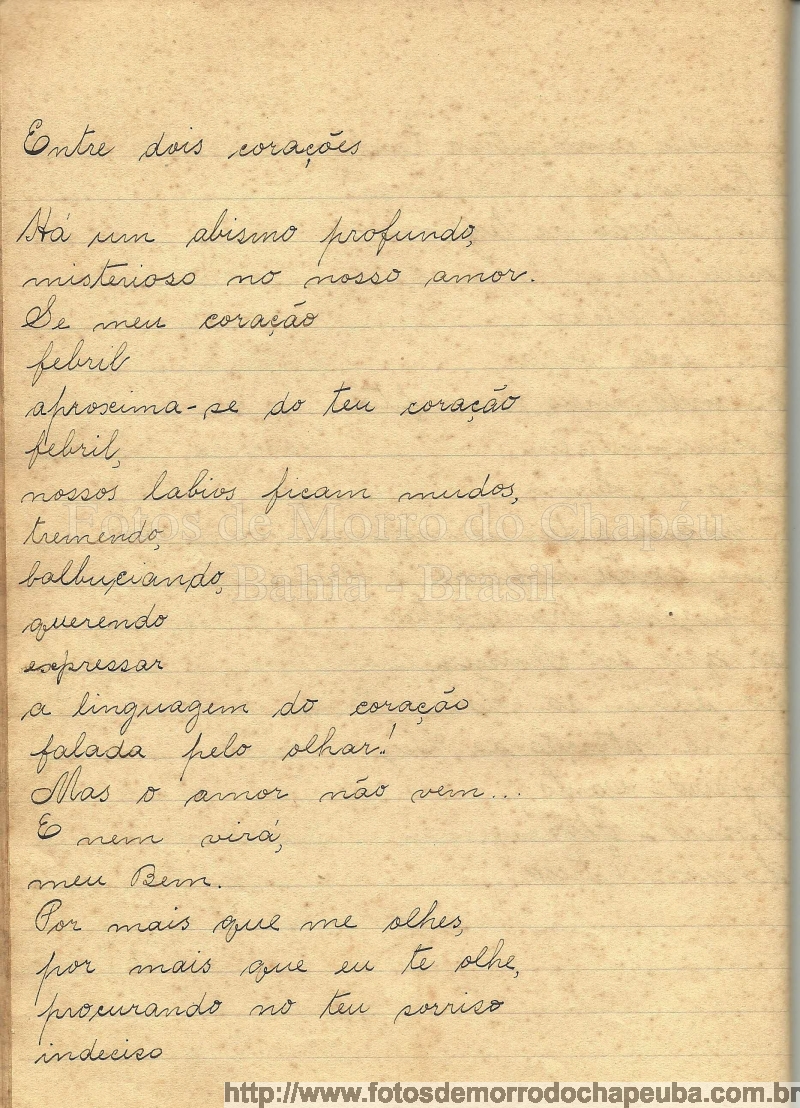 Entre dois corações
Há um abismo profundo,
misterioso no nosso amor.
Se meu coração
febril
aproxima-se do teu coração
febril,
nossos labios ficam mudos,
Fotos de Morro do Chapéu
tremendo,
balbuciando,
Bahia - Brasil
querendo
expressar
a linguagem do coração
falada pelo olhar!
Mas o amor não vem...
E nem virá,
meu Bem.
Por mais que me olhes,
por mais que eu te olhe,
procurando no teu sorriso
indeciso
http://www.fotosdemorrodochapeuba.com.br